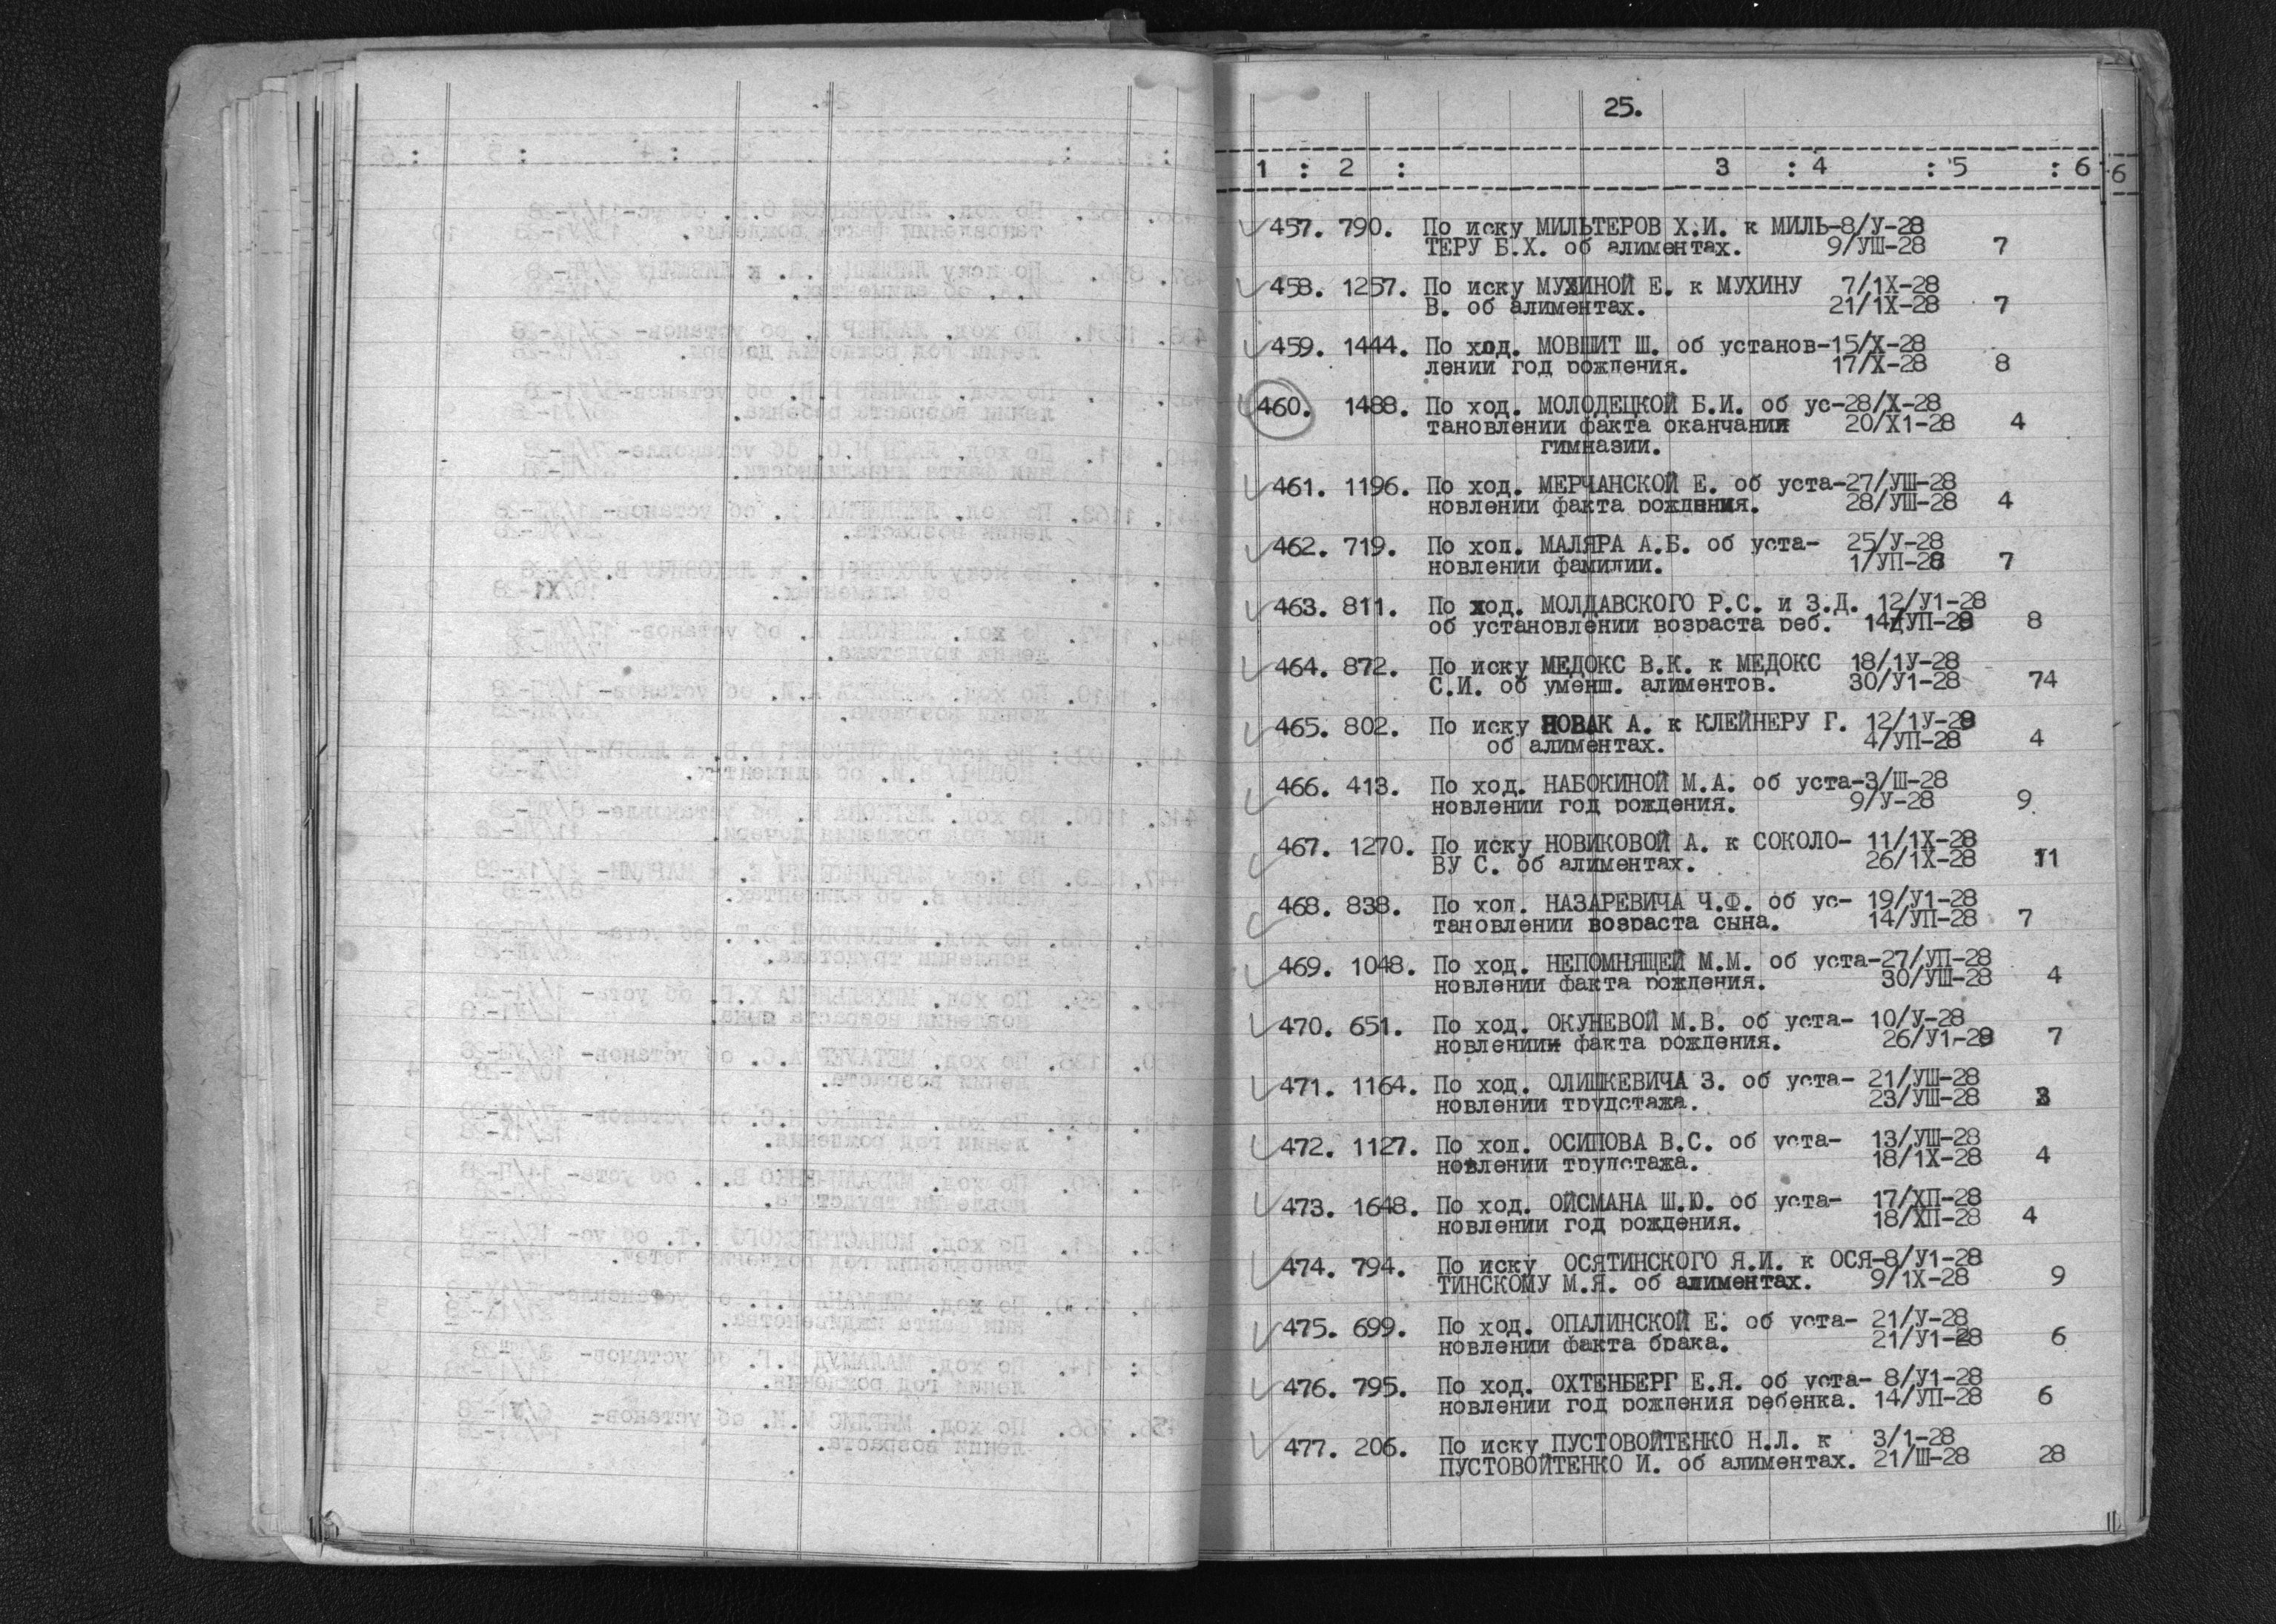 25.
1 : 2 : 3 : 4 : 5 : 6 6
457. 790. По иску МИЛЬТЕРОВ Х.И. к МИЛЬ-8/У-28
ТЕРУ Б.Х. об алиментах. 9/УШ-28 7
458. 1257. По иску МУХИНОЙ Е. к МУХИНУ 7/1Х-28
В. об алиментах. 21/1Х-28 7
459. 1444. По ход. МОВШИТ Ш. об установ-15/Х-28
лении год рождения. 17/Х-28 8
460. 1488. По ход. МОЛОДЕЦКОЙ Б.И. об ус-28/Х-28
тановлении факта оканчания 20/Х1-28 4
гимназии.
461. 1196. По ход. МЕРЧАНСКОЙ Е. об уста-27/УШ-28
новлении факта рождения. 28/УШ-28 4
462. 719. По ход. МАЛЯРА А.Б. об уста- 25/У-28
новлении фамилии. 1/УП-28 7
463. 811. По ход. МОЛДАВСКОГО Р.С. и З.Д. 12/У1-28
об установлении возраста реб. 14/УП-28 8
464. 872. По иску МЕДОКС В.К. к МЕДОКС 18/1У-28
С.И. об уменш. алиментов. 30/У1-28 74
465. 802. По иску НОВАК А. к КЛЕЙНЕРУ Г. 12/1У-28
об алиментах. 4/УП-28 4
466. 413. По ход. НАБОКИНОЙ М.А. об уста-3/Ш-28
новлении год рождения. 9/У-28 9
467. 1270. По иску НОВИКОВОЙ А. к СОКОЛО- 11/1Х-28
ВУ С. об алиментах. 26/1Х-28 11
468. 838. По ход. НАЗАРЕВИЧА Ч.Ф. об ус- 19/У1-28
тановлении возраста сына. 14/УП-28 7
469. 1048. По ход. НЕПОМНЯЩЕЙ М.М. об уста-27/УП-28
новлении факта рождения. 30/УШ-28 4
470. 651. По ход. ОКУНЕВОЙ М.В. об уста- 10/У-28
новлениии факта рождения. 26/У1-28 7
471. 1164. По ход. ОЛИШКЕВИЧА З. об уста- 21/УШ-28
новлении трудстажа. 23/УШ-28 3
472. 1127. По ход. ОСИПОВА В.С. об уста- 13/УШ-28
новлении трудстажа. 18/1Х-28 4
473. 1648. По ход. ОЙСМАНА Ш.Ю. об уста- 17/ХП-28
новлении год рождения. 18/ХП-28 4
474. 794. По иску ОСЯТИНСКОГО Я.И. к ОСЯ-8/У1-28
ТИНСКОМУ М.Я. об алиментах. 9/1Х-28 9
475. 699. По ход. ОПАЛИНСКОЙ Е. об уста- 21/У-28
новлении факта брака. 21/У1-28 6
476. 795. По ход. ОХТЕНБЕРГ Е.Я. об уста- 8/У1-28
новлении год рождения ребенка. 14/УП-28 6
477. 206. По иску ПУСТОВОЙТЕНКО Н.Л. к 3/1-28
ПУСТОВОЙТЕНКО И. об алиментах. 21/Ш-28 28